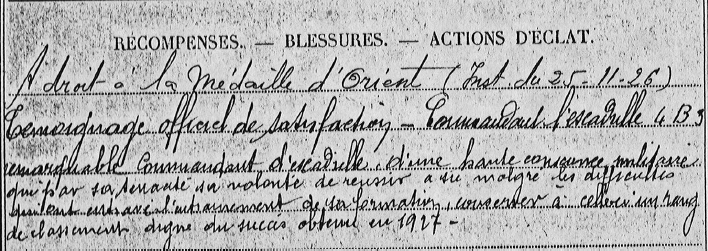 RÉCOMPENSES. — BLESSURES. — ACTIONS D'ÉCLAT.
A droit à la Médaille d'Orient (Inst du 25-11-26)
Temoignage officiel de satisfaction – Commandant l'escadrille 4 B 3
remarquable Commandant d'escadrille, d'une haute conscience militaire
qui par sa tenacité sa volonté de reussir a su malgré les difficultés
qui ont entravé l'entrainement de sa formation, conserver à celle-ci un rang
de classement digne du succès obtenu en 1927 –